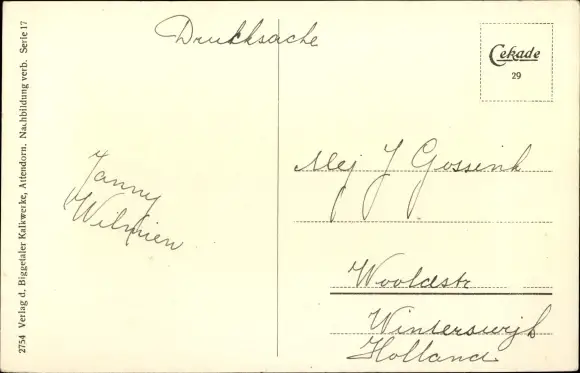 Drucksache
Cekade
29
Mej J Gossink
Janny
Wilmien
Wooldstr
Winterswijk
Holland
2754 Verlag d. Biggetaler Kalkwerke, Attendorn. Nachbildung verb. Serie 17